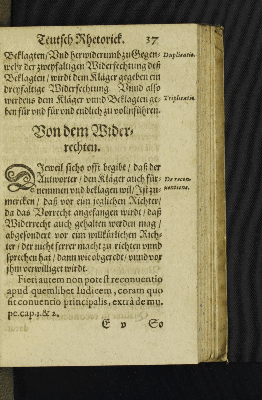 Teutsch Rhetorick. 37
Beklagten / Vnd herwiderumb zu Gegen- Duplicatio.
wehr der zweyfaltigen Widerfechtung deß
Beklagten / wirdt dem Kläger gegeben ein
dreyfaltige Widerfechtung. Vnnd also
werdens dem Kläger vnnd Beklagten ge- Triplicatio.
ben für vnd für vnd endlich zu volnführen.
Von dem Wider-
rechten.
DJeweil sichs offt begibt / daß der
Antworter / den Kläger auch für- De recon-
nemmen vnd beklagen wil / Jst zu- uentione.
mercken / daß vor ein jeglichen Richter /
da das Vorrecht angefangen wurdt / daß
Widerrecht auch gehalten werden mag /
abgesondert vor eim willkürlichen Rich-
ter / der nicht ferrer macht zu richten vnnd
sprechen hat / dann wie obgeredt / vnnd vor
jhm verwilliget wirdt.
Fieri autem non potest reconuentio
apud quemlibet Iudicem, coram quo
fit conuentio principalis, extra de mu.
pe. cap. 1. & 2.
E v So